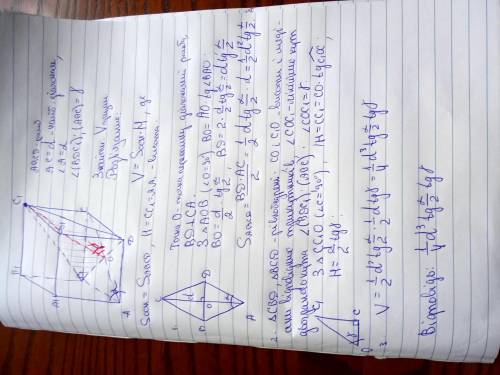 ABCD - ромб
AC = d - менша діагональ,
∠A = α
∠(BDC₁), (ABC) = γ
Знайти V призми
Розв'язання:
V = Sосн · H, де
Sосн = SABCD, H = CC₁ = AA₁ - висота.
1.
Точка O - точка перетину діагоналей ромба,
BD ⊥ CA.
З △AOB (∠O = 90°) BO = AO · tg∠BAO
BO = d/2 · tg α/2, BD = 2 · d/2 tg α/2 = d tg α/2
SABCD = BD · AC / 2 = 1/2 d tg α/2 · d = 1/2 d² tg α/2
2. △CBD, △BC₁D - рівнобедрені. CO і C₁O - висоти і меді-
ани відповідних трикутників. ∠COC₁ - лінійний кут
двогранного кута ∠(BDC₁), (ABC). ∠COC₁ = γ
З △CC₁O (∠C = 90°) H = CC₁ = CO · tg COC₁
H = d/2 tg γ.
3. V = 1/2 d² tg α/2 · 1/2 d tg γ = 1/4 d³ tg α/2 tg γ
Відповідь: 1/4 d³ tg α/2 tg γ